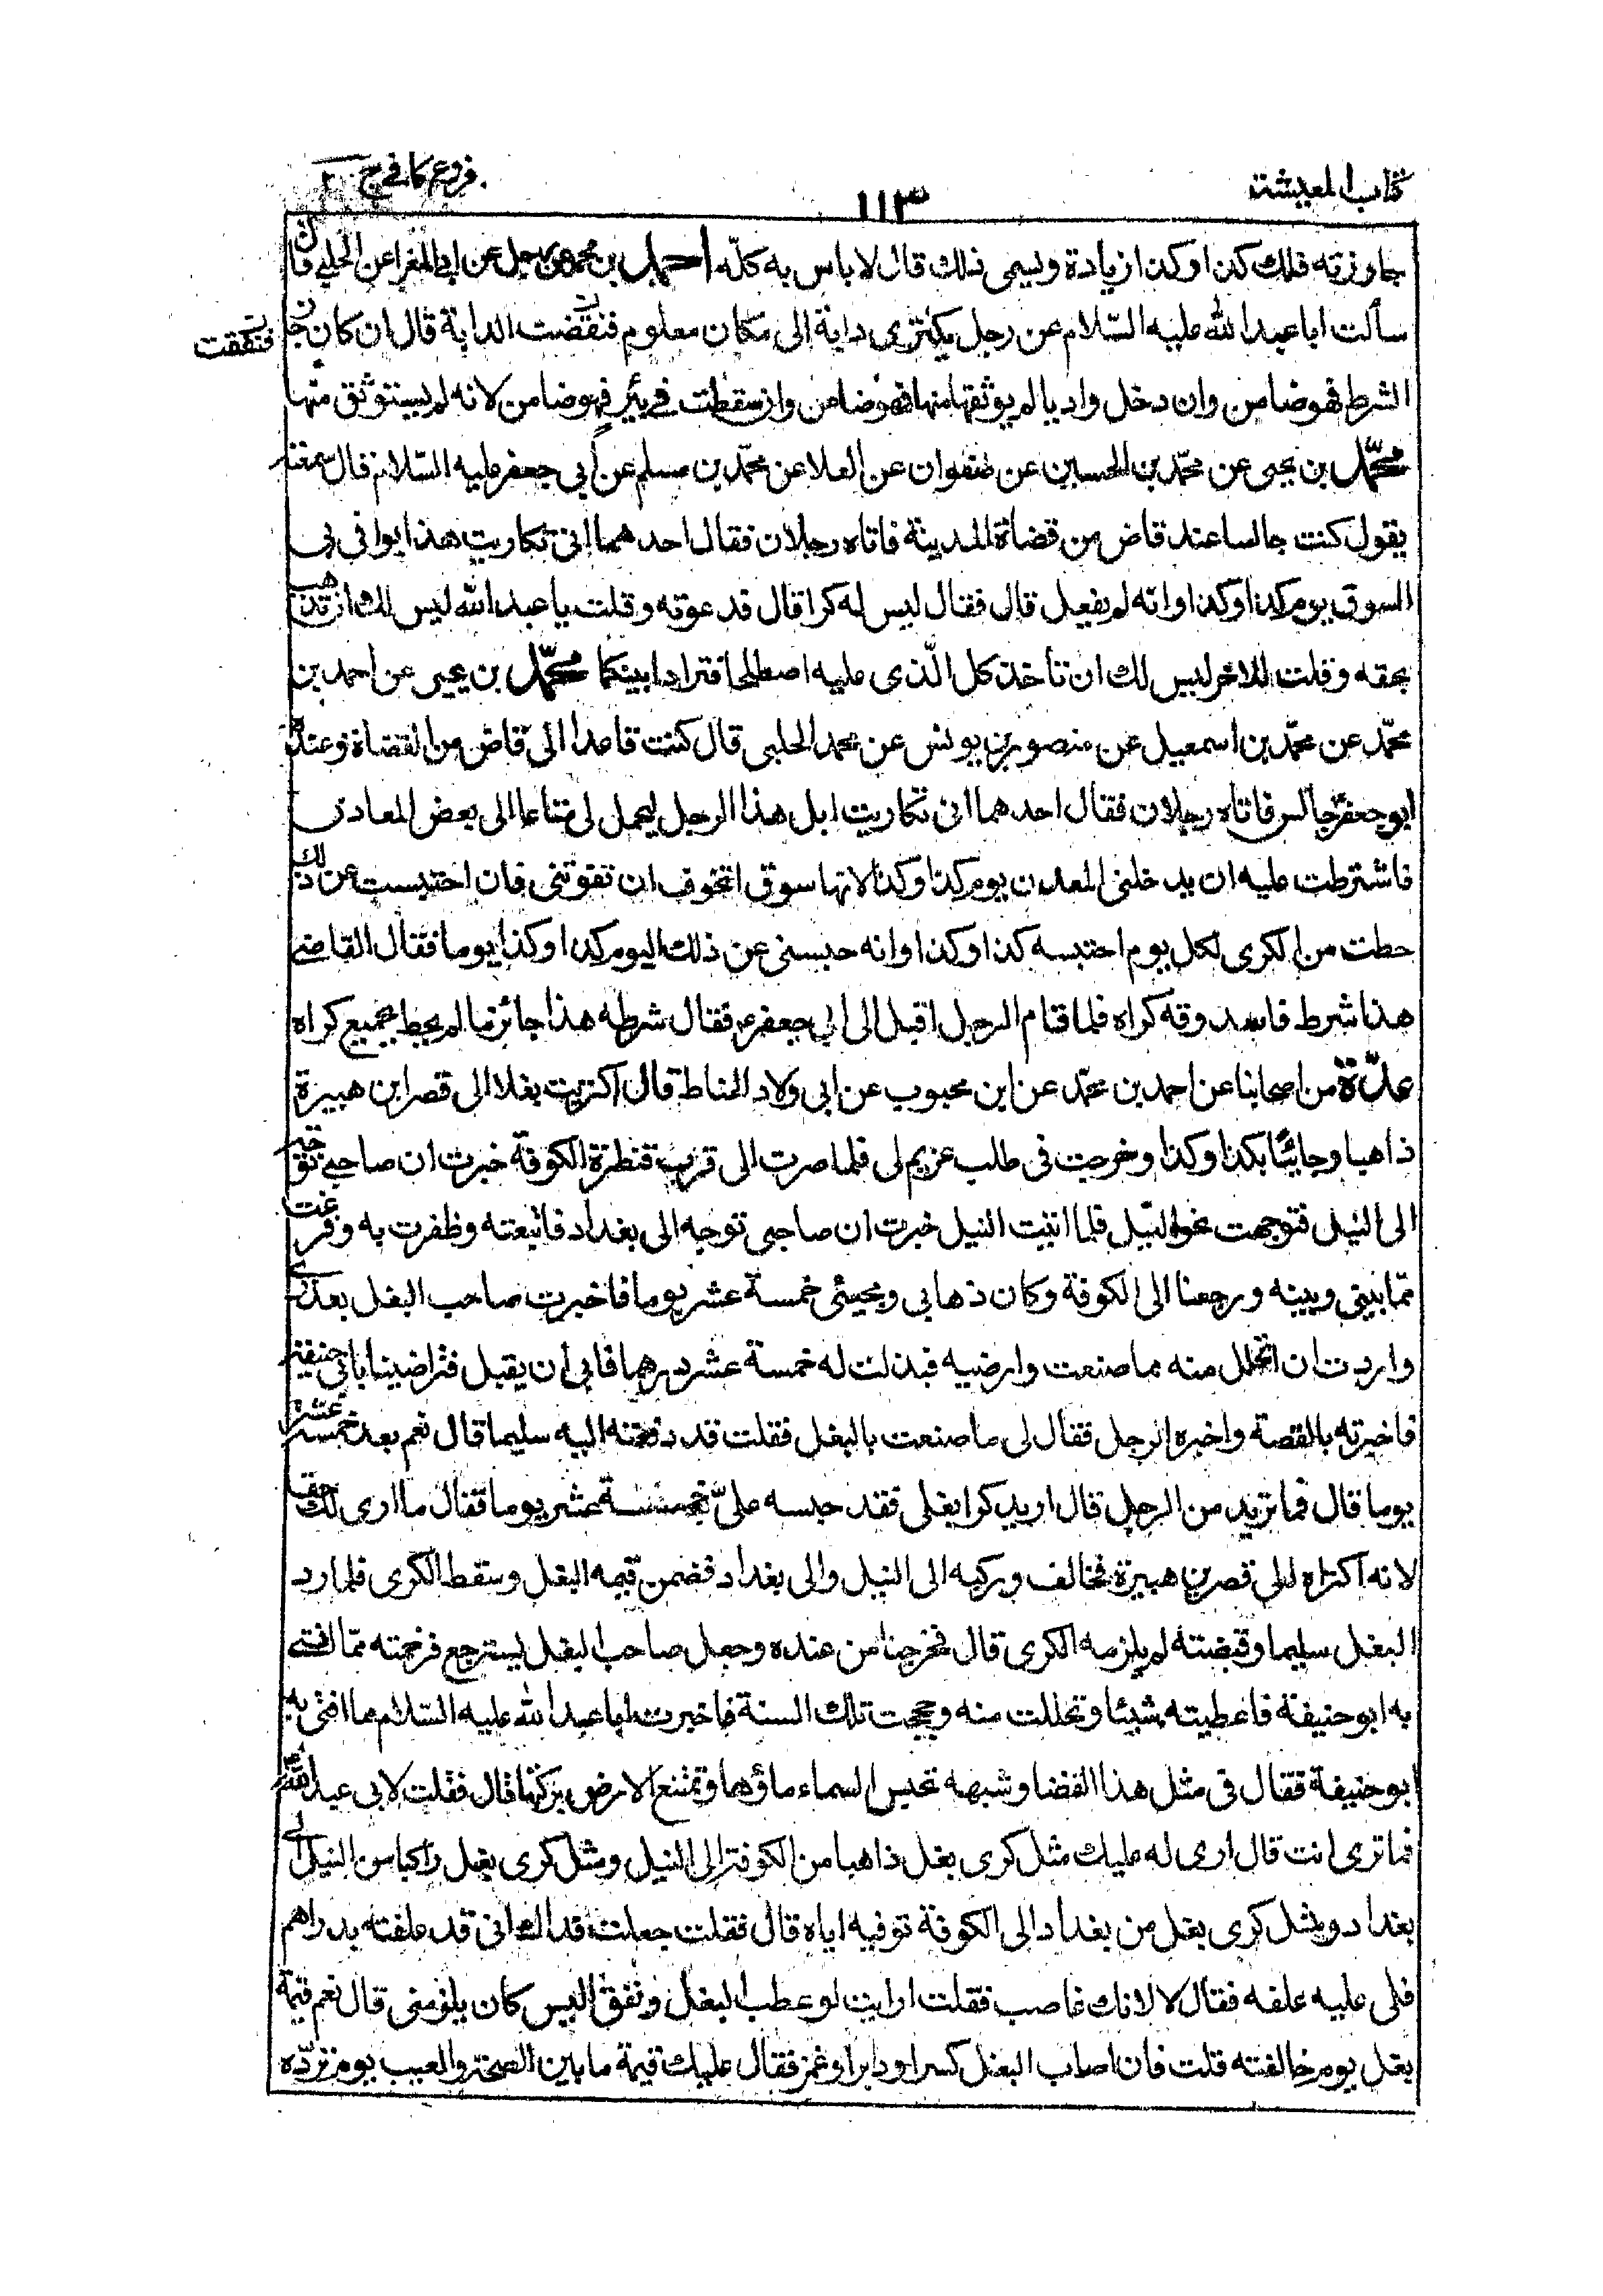 كتاب المعيشة
١١٣
فروع كافى ج ٢
جاوزته فلك كذا وكذا زيادة ويسمى ذلك قال لا باس به كلّه احمد بن محمد عن رجل عن ابى المغرا عن الحلبى قال
سألت ابا عبد الله عليه السّلام عن رجل يكترى دابة الى مكان معلوم فنفقت الدابة قال ان كان جاز
فنفقت
الشرط فهو ضامن وان دخل واديا لم يوثقها فهو ضامن وان سقطت فى بئر فهو ضامن لانه لم يستوثق منها
محمّد بن يحيى عن محمّد بن الحسين عن صفوان عن العلا عن محمّد بن مسلم عن ابى جعفر عليه السّلام قال سمعته
يقول كنت جالسا عند قاض من قضاة المدينة فاتاه رجلان فقال احدهما انى تكاريت هذا يوافى بى
السوق يوم كذا وكذا وانه لم يفعل قال فقال ليس له كرا قال قدعوته وقلت يا عبد الله ليس لك ان تذهب
بحقه وقلت للاخر ليس لك ان تأخذ كل الّذى عليه اصطلحا فترادا بينكما محمّد بن يحيى عن احمد بن
محمّد عن محمّد بن اسمعيل عن منصور بن يونس عن محمد الحلبى قال كنت قاعدا الى قاض من القضاة وعنده
ابو جعفر جالس فاتاه رجلان فقال احدهما انى تكاريت ابل هذا الرجل ليحمل لى متاعا الى بعض المعادن
فاشترطت عليه ان يدخلنى المعدن يوم كذا وكذا لانها سوق اتخوف ان تفوتنى فان احتبست عن ذلك
حططت من الكرى لكل يوم احتبسه كذا وكذا وانه حبسنى عن ذلك اليوم كذا وكذا يوما فقال القاضى
هذا شرط فاسد وفه كراه فلما قام الرجل اقبل الى ابى جعفر ع فقال شرطه هذا جائز ما لم يحط بجميع كراه
عدّة من اصحابنا عن احمد بن محمّد عن ابن محبوب عن ابى ولاد الحناط قال اكتريت بغلا الى قصر ابن هبيرة
ذاهبا وجائيًا بكذا وكذا وخرجت فى طلب غريم لى فلما صرت الى قرب قنطرة الكوفة خبرت ان صاحبى توجه
الى النيل فتوجهت نحو النّيل فلما اتيت النيل خبرت ان صاحبى توجه الى بغداد فاتبعته وظفرت به وفرغت
ممّا بينى وبينه ورجعنا الى الكوفة وكان ذهابى ومجيئى خمسة عشر يوما فاخبرت صاحب البغل بعذرى
واردت ان اتحلل منه مما صنعت وارضيه فبذلت له خمسة عشر درهما فابى ان يقبل فتراضينا بابى حنيفة
فاخبرته بالقصة واخبره الرجل فقال لى ما صنعت بالبغل فقلت قد دفعته اليه سليما قال نعم بعد خمسة عشر
يوما قال فما تريد من الرجل قال اريد كرا بغلى فقد حبسه علىّ خمسة عشر يوما فقال ما ارى لك حقا
لانه اكتراه الى قصر بن هبيرة فخالف وركبه الى النيل والى بغداد فضمن قيمه البغل وسقط الكرى فلما رد
البغل سليما وقبضته لم يلزمه الكرى قال فخرجنا من عنده وجعل صاحب البغل يسترجع فرحمته ممّا افتى
به ابو حنيفة فاعطيته شيئا وتحللت منه وحججت تلك السنة فاخبرت ابا عبد الله عليه السّلام ما افتى به
ابو حنيفة فقال فى مثل هذا القضا وشبهه تحبس السماء ماؤها وتمنع الارض بركتها قال فقلت لابى عبد الله ع
فما ترى انت قال ارى له عليك مثل كرى بغل ذاهبا من الكوفة الى النيل ومثل كرى بغل راكبا من النيل الى
بغداد ومثل كرى بغل من بغداد الى الكوفة توفيه اياه قال فقلت جعلت فداك انى قد علفته بدراهم
فلى عليه علفه فقال لا لانك غاصب فقلت ارايت لو عطب البغل ونفق اليس كان يلزمنى قال نعم قيمة
بغل يوم خالفته قلت فان اصاب البغل كسر او دبر او غمز فقال عليك قيمة ما بين الصحة والعيب يوم تردّه